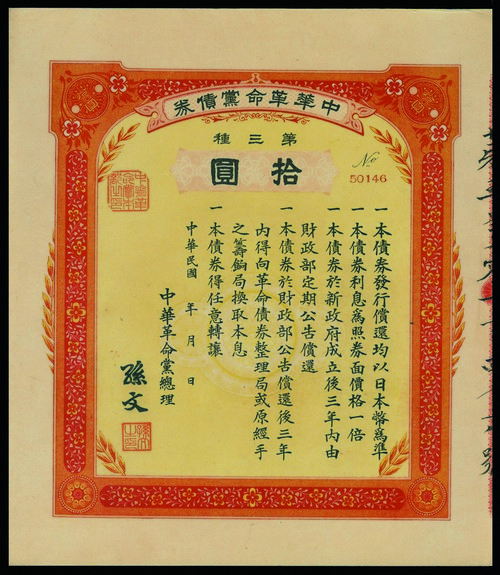 中華革命黨債券
第三種
拾圓
No 50146
一本債券發行償還均以日本幣爲準
一本債券利息爲照券面價格一倍
一本債券於新政府成立後三年內由
財政部定期公告償還
一本債券於財政部公告償還後三年
內得向革命債券整理局或原經手
之籌餉局換取本息
一本債券得任意轉讓
中華民國 年 月 日
中華革命黨總理
孫文